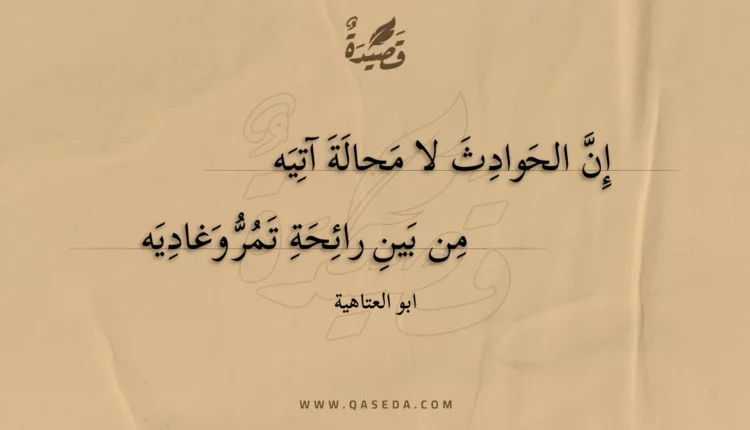 قَصِيْدَةٌ
إِنَّ الحَوادِثَ لا مَحالَةَ آتِيَه
مِن بَينِ رائِحَةِ تَمُرُّ وَغادِيَه
ابو العتاهية
WWW.QASEDA.COM